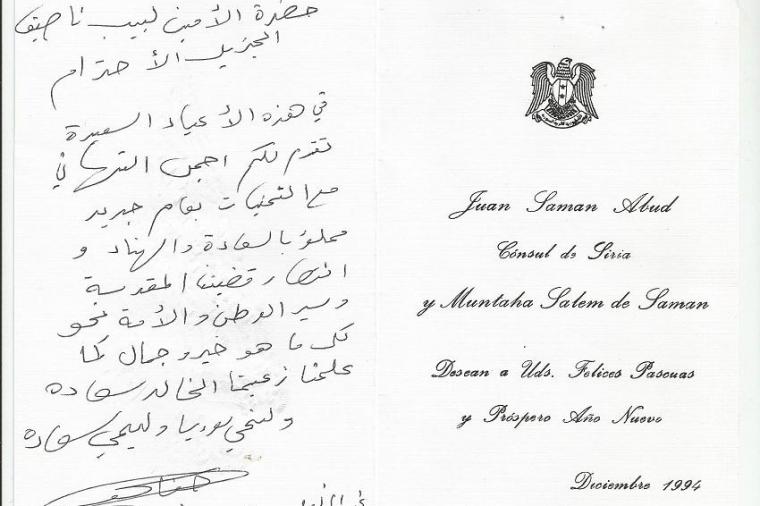 حضرة الأمين لبيب ناصيف
الجزيل الاحترام
في هذه الأعياد السعيدة
نقدم لكم اجمل التهاني
مع التمنيات بعام جديد
مملؤ بالسعادة والهناء و
انتصار قضيتنا المقدسة
وسير الوطن والأمة نحو
كل ما هو خير وجمال كما
علمنا زعيمنا الخالد سعاده
ولتحي سوريا وليحي سعاده
Juan Saman Abud
Cónsul de Siria
y Muntaha Salem de Saman
Desean a Uds. Felices Pascuas
y Próspero Año Nuevo
Diciembre 1994